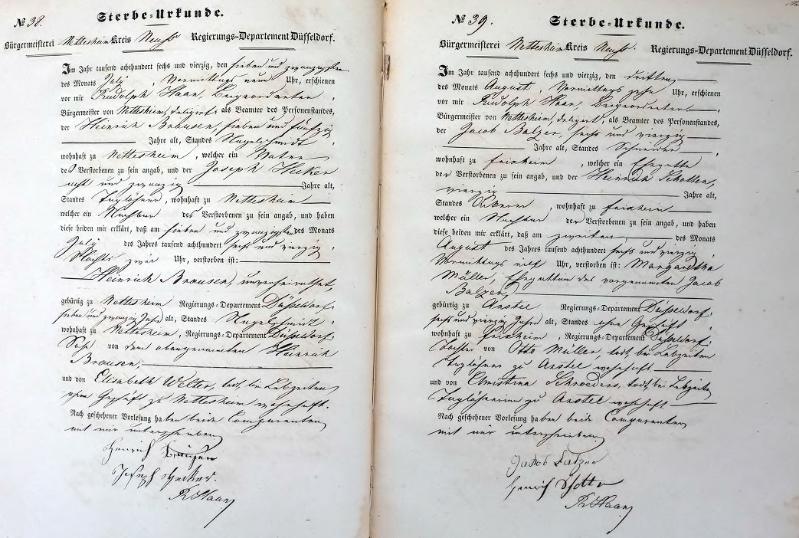 № 38. Sterbe-Urkunde.
Bürgermeisterei Nettesheim Kreis Neuß Regierungs-Departement Düsseldorf.
Im Jahr tausend achthundert sechs und vierzig, den sieben und zwanzigsten
des Monats July, Vormittags neun Uhr, erschienen
vor mir Rudolph Haar, Beigeordneter
Bürgermeister von Nettesheim, delegirt als Beamter des Personenstandes,
der Heinrich Brausen, sieben und fünfzig
Jahre alt, Standes Nagelschmidt
wohnhaft zu Nettesheim, welcher ein Vater
des Verstorbenen zu sein angab, und der Joseph Hecker
acht und zwanzig Jahre alt,
Standes Taglöhner, wohnhaft zu Nettesheim
welcher ein Nachbar des Verstorbenen zu sein angab, und haben
diese beiden mir erklärt, daß am sieben und zwanzigsten des Monats
July des Jahres tausend achthundert sechs und vierzig,
Nachts zwei Uhr, verstorben ist:
Heinrich Brausen, unverheirathet,
gebürtig zu Nettesheim Regierungs-Departement Düsseldorf
sieben und zwanzig Jahre alt, Standes Nagelschmidt,
wohnhaft zu Nettesheim, Regierungs-Departement Düsseldorf
Sohn von dem obengenannten Heinrich
Brausen,
und von Elisabeth Welter, todt, bei Lebzeiten
ohne Geschäft zu Nettesheim wohnhaft.
Nach geschehener Vorlesung haben beide Comparenten
mit mir unterschrieben
Heinrich Brausen
Joseph Hecker
R. Haar
№ 39. Sterbe-Urkunde.
Bürgermeisterei Nettesheim Kreis Neuß, Regierungs-Departement Düsseldorf.
Im Jahr tausend achthundert sechs und vierzig, den dritten
des Monats August, Vormittags zehn Uhr, erschienen
vor mir Rudolph Haar, Beigeordneter
Bürgermeister von Nettesheim, delegirt, als Beamter des Personenstandes,
der Jacob Balzer, sechs und vierzig
Jahre alt, Standes Schneider
wohnhaft zu Frixheim, welcher ein Ehegatte
der Verstorbenen zu sein angab, und der Heinrich Schotten,
vierzig Jahre alt,
Standes Ackerer, wohnhaft zu Frixheim
welcher ein Nachbar der Verstorbenen zu sein angab, und haben
diese beiden mir erklärt, daß am zweiten des Monats
August des Jahres tausend achthundert sechs und vierzig
Vormittags elf Uhr, verstorben ist: Margaretha
Müller, Ehegattin des vorgenannten Jacob
Balzer
gebürtig zu Anstel Regierungs-Departement Düsseldorf
sechs und vierzig Jahre alt, Standes ohne Geschäft,
wohnhaft zu Frixheim, Regierungs-Departement Düsseldorf
Tochter von Otto Müller, todt, bei Lebzeiten
Taglöhner zu Anstel wohnhaft
und von Christina Schroeders, todt, bei Lebzeiten
Taglöhnerin zu Anstel wohnhaft
Nach geschehener Vorlesung haben beide Comparenten
mit mir unterschrieben
Jacob Balzer
Heinrich Schotten
R. Haar